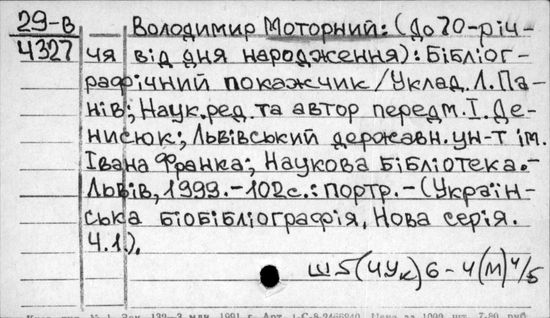 29-В
4327
Володимир Моторний: (До 70-річ-
чя від дня народження): Бібліог-
рафічний покажчик/Уклад. Л. Па-
нів; Наук. ред. та автор передм. І. Де-
нисюк; Львівський державн. ун-т ім.
Івана Франка; Наукова бібліотека.-
Львів, 1999.-102с.: портр.-(Україн-
ська біобібліографія. Нова серія.
Ч.1.).
Ш5(4Ук)6-4(М)4/5